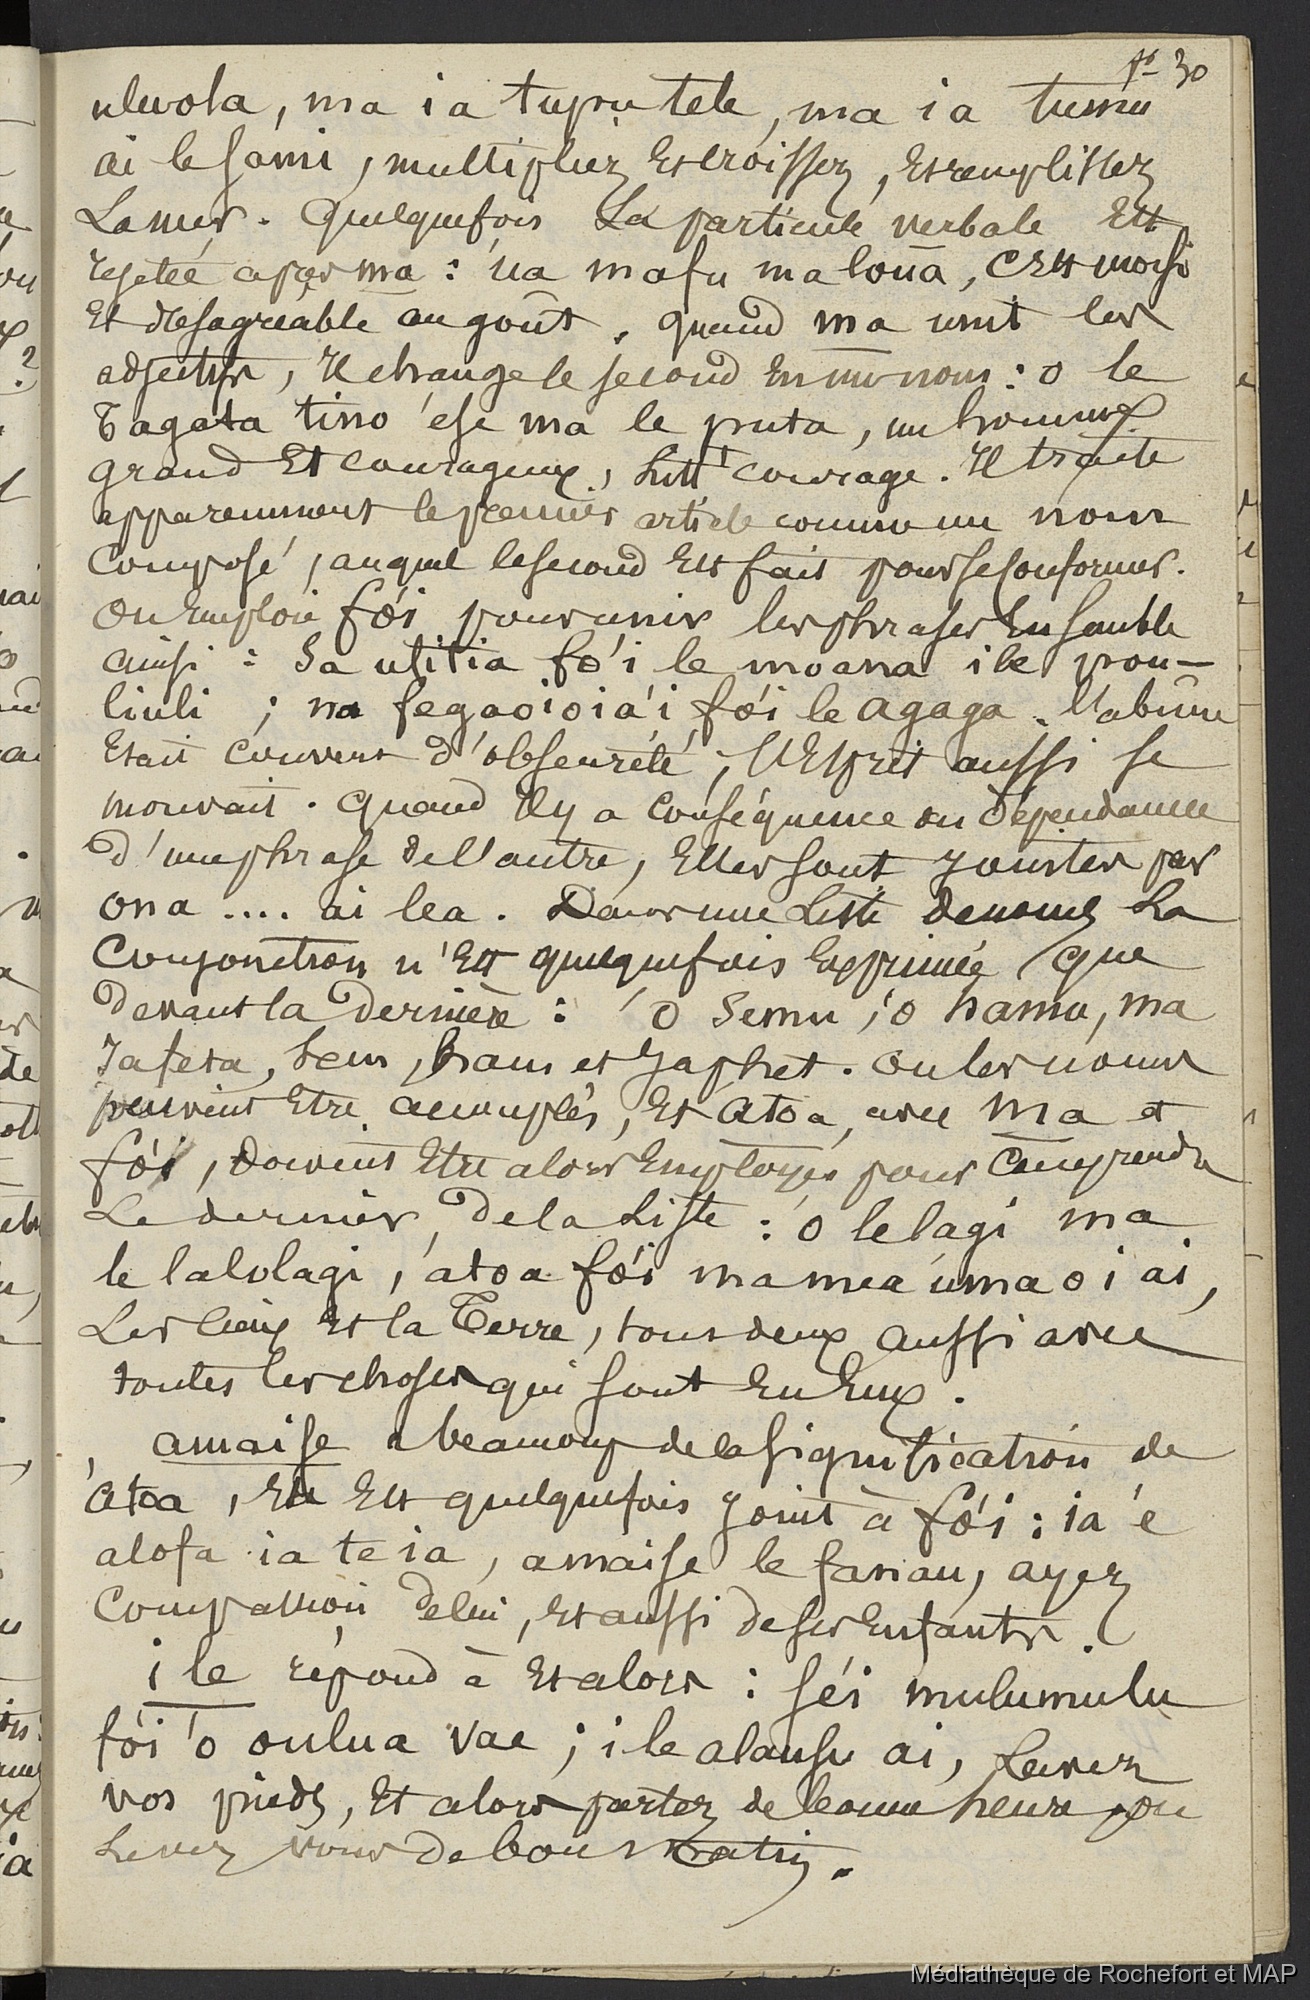 fo 30
uluola, ma ia tupu tele, ma ia tumu
ai le sami, multipliez Et croissez, Et remplissez
La mer. Quelquefois La particule verbale Est
rejetée après ma : 'ua mafu ma louā, C'Est moisi
Et désagréable au goût. Quand ma unit les
adjectifs, Il change le second En un nom : o le
Tagata tino 'ese ma le puta, un homme
grand Et courageux, Litt t courage. Il traite
apparemment le premier article comme un nom
composé, auquel le second Est fait pour se conformer.
On Emploie fo'i pour unir les phrases Ensemble
ainsi : Sa ufitia fo'i le moana i le pou-
liuli ; na fegaoioia'i fo'i le agaga. l'abîme
Etait couvert d'obscurité ; l'Esprit aussi se
mouvait. Quand Il y a conséquence ou dépendance
d'une phrase de l'autre, Elles sont jointes par
ona .... ai lea. Dans une Liste de noms La
Conjonction n'Est quelquefois Exprimée que
devant la dernière : 'o Semu, 'o hamu, ma
Iafeta, Sem, ham et Japhet. ou les noms
peuvent Etre accouplés, Et atoa, avec ma et
fo'i, doivent Etre alors Employés pour Comprendre
Le dernier de la Liste : 'o le lagi ma
le lalolagi, 'atoa fo'i ma mea uma o i ai,
Les Cieux Et la Terre, tous deux aussi avec
toutes les choses qui sont En Eux.
amaise a beaucoup de la signification de
'atoa, Et Est quelquefois joint à fo'i : ia 'e
alofa ia te ia, amaise le fanau, ayez
Compassion de lui, Et aussi de ses Enfants.
i le répond à Et alors : se'i mulumulu
fo'i 'o oulua vae ; i le alausu ai, Lavez
vos pieds, Et alors partez de bonne heure ou
Levez vous de bon Matin.